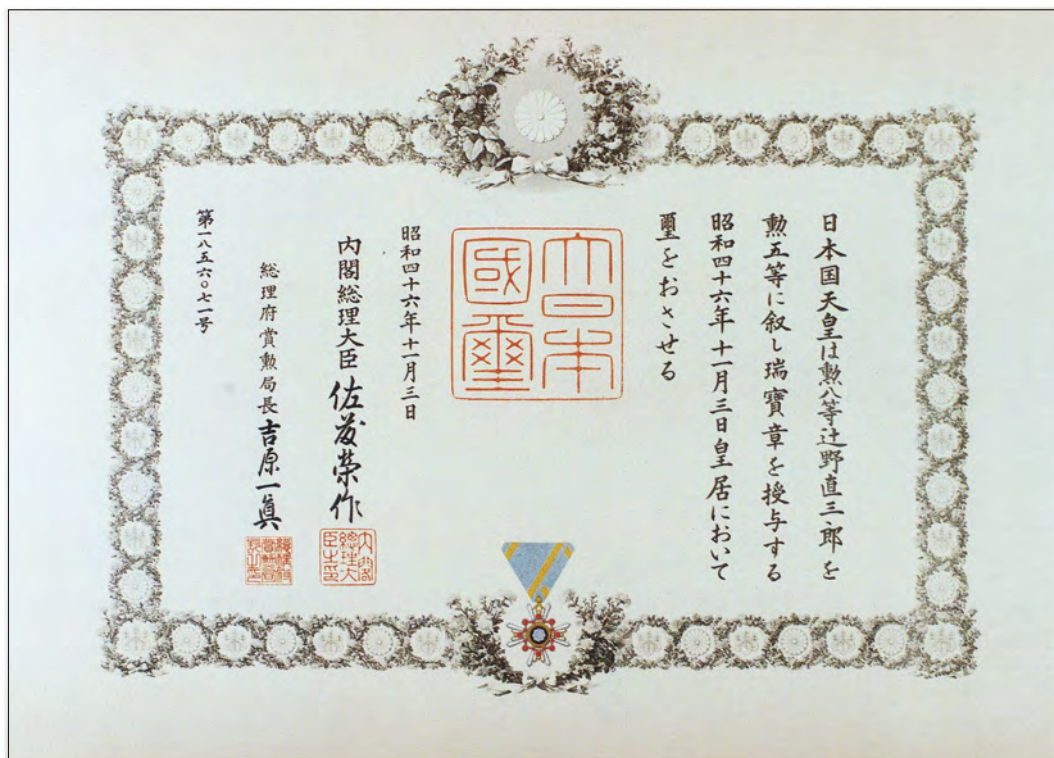 日本国天皇は勲八等辻野直三郎を
勲五等に叙し瑞寶章を授与する
昭和四十六年十一月三日皇居において
璽をおさせる
大日本
國璽
昭和四十六年十一月三日
内閣総理大臣 佐藤榮作
内閣
總理大
臣之印
総理府賞勲局長 吉原一眞
第一八五六〇七一号